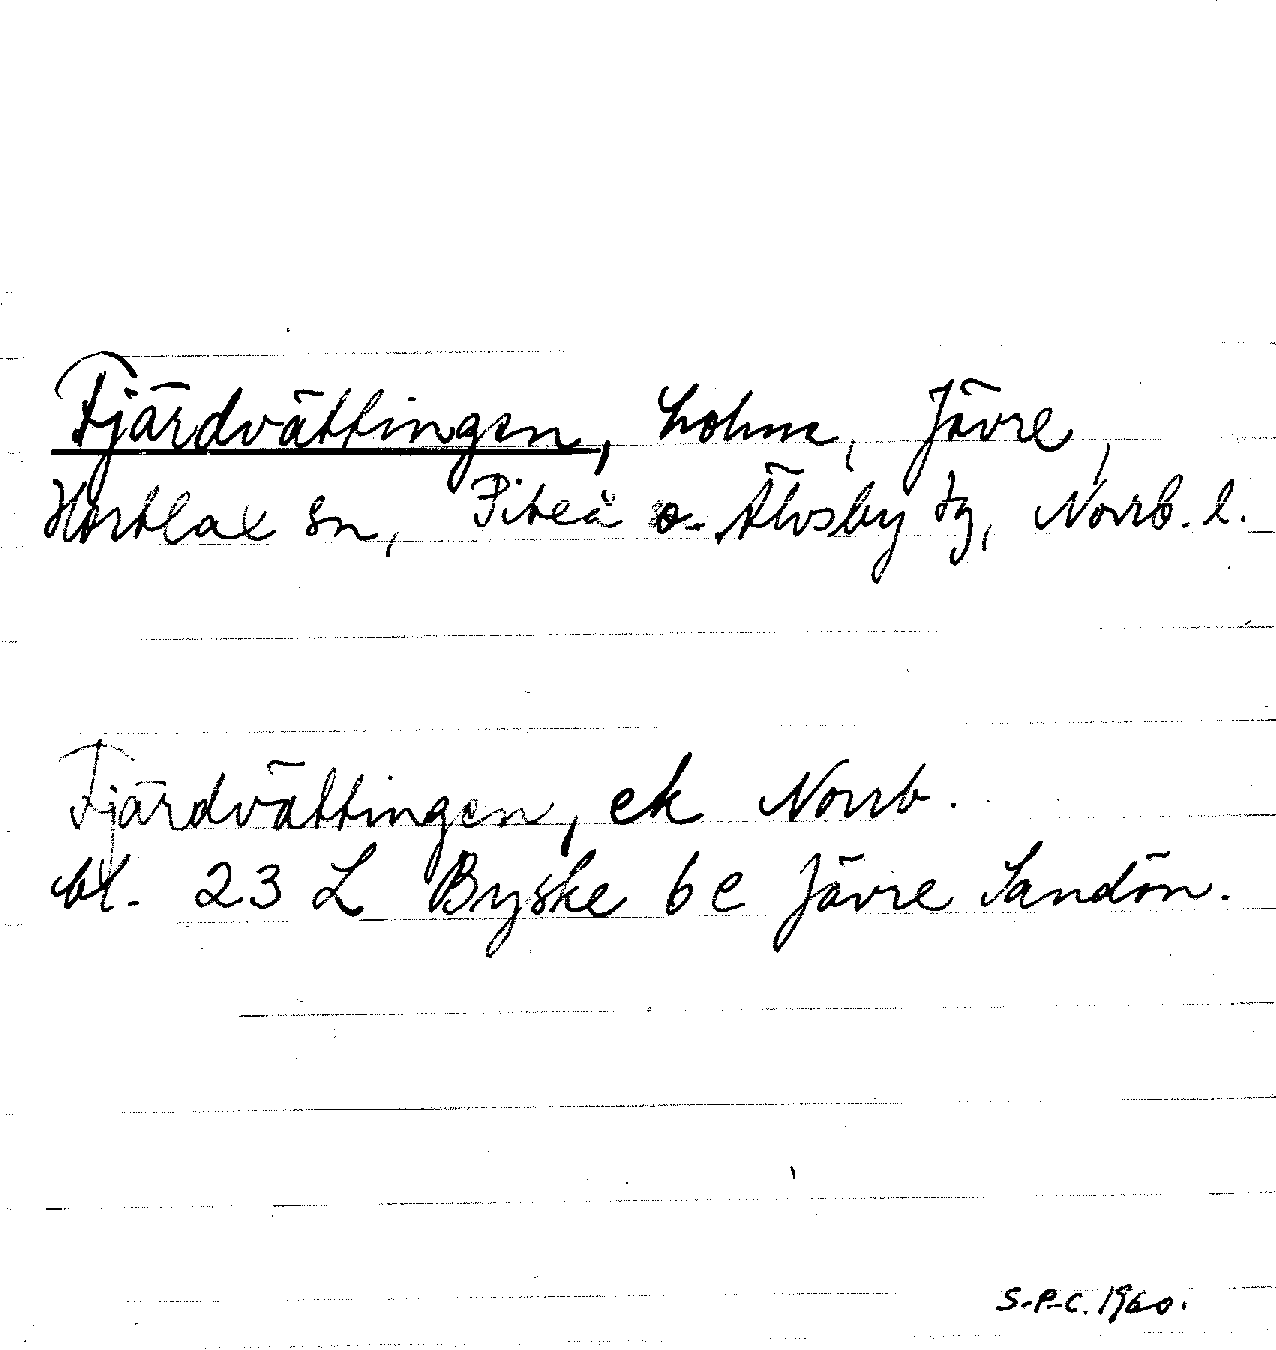 Fjärdvättingen, holme, Jävre,
Hortlax sn, Piteå o. Älvsby tg, Norrb. l.
Fjärdvättingen, ek Norrb.
bl. 23 L Byske 6 e Jävre Sandön.
S.P.C. 1960.